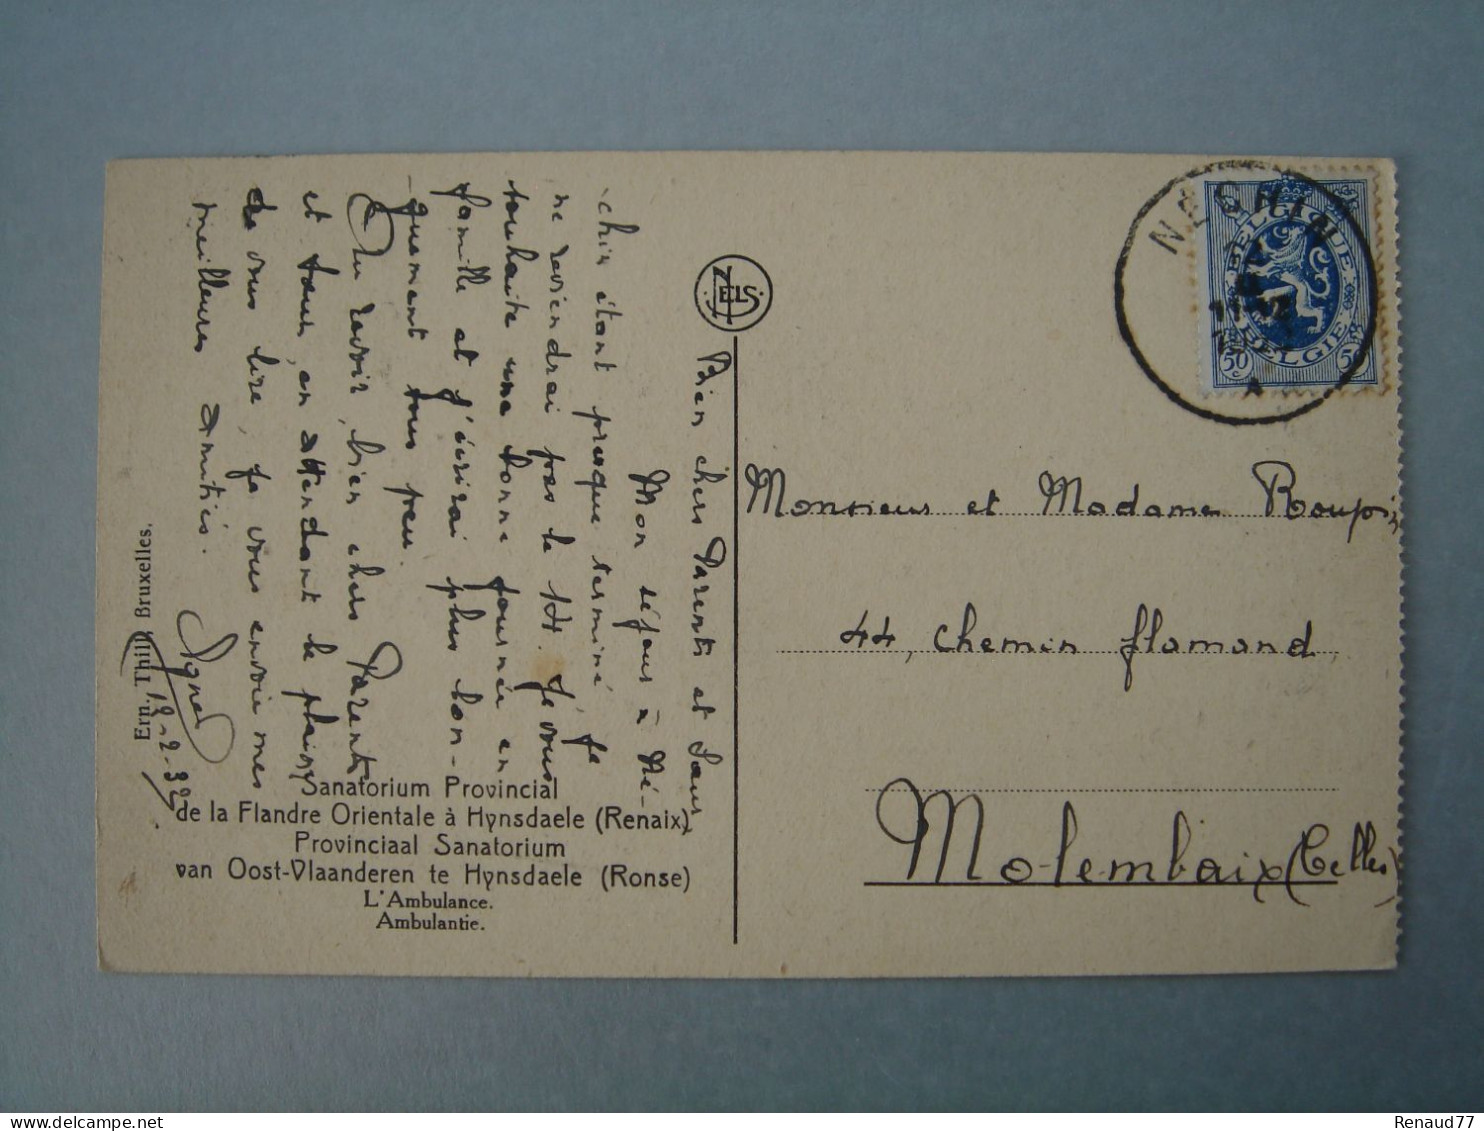 Bien chers Parents et Sœur
Mon séjour à Né-
chin étant presque terminé je
ne reviendrai pas le 14. Je vous
souhaite une bonne journée en
famille et j'écrirai plus lon-
guement sous peu.
Au revoir, bien chers Parents
et sœur, en attendant le plaisir
de vous lire, je vous envoie mes
meilleures amitiés.
Agnes
13-2-32
NELS
Ern. Thill, Bruxelles.
Sanatorium Provincial
de la Flandre Orientale à Hynsdaele (Renaix)
Provinciaal Sanatorium
van Oost-Vlaanderen te Hynsdaele (Ronse)
L'Ambulance.
Ambulantie.
NECHIN
A
BELGIQUE
BELGIE
50 c
Monsieur et Madame Roupin
44, chemin flamand
Molembaix (Celles)
Renaud77